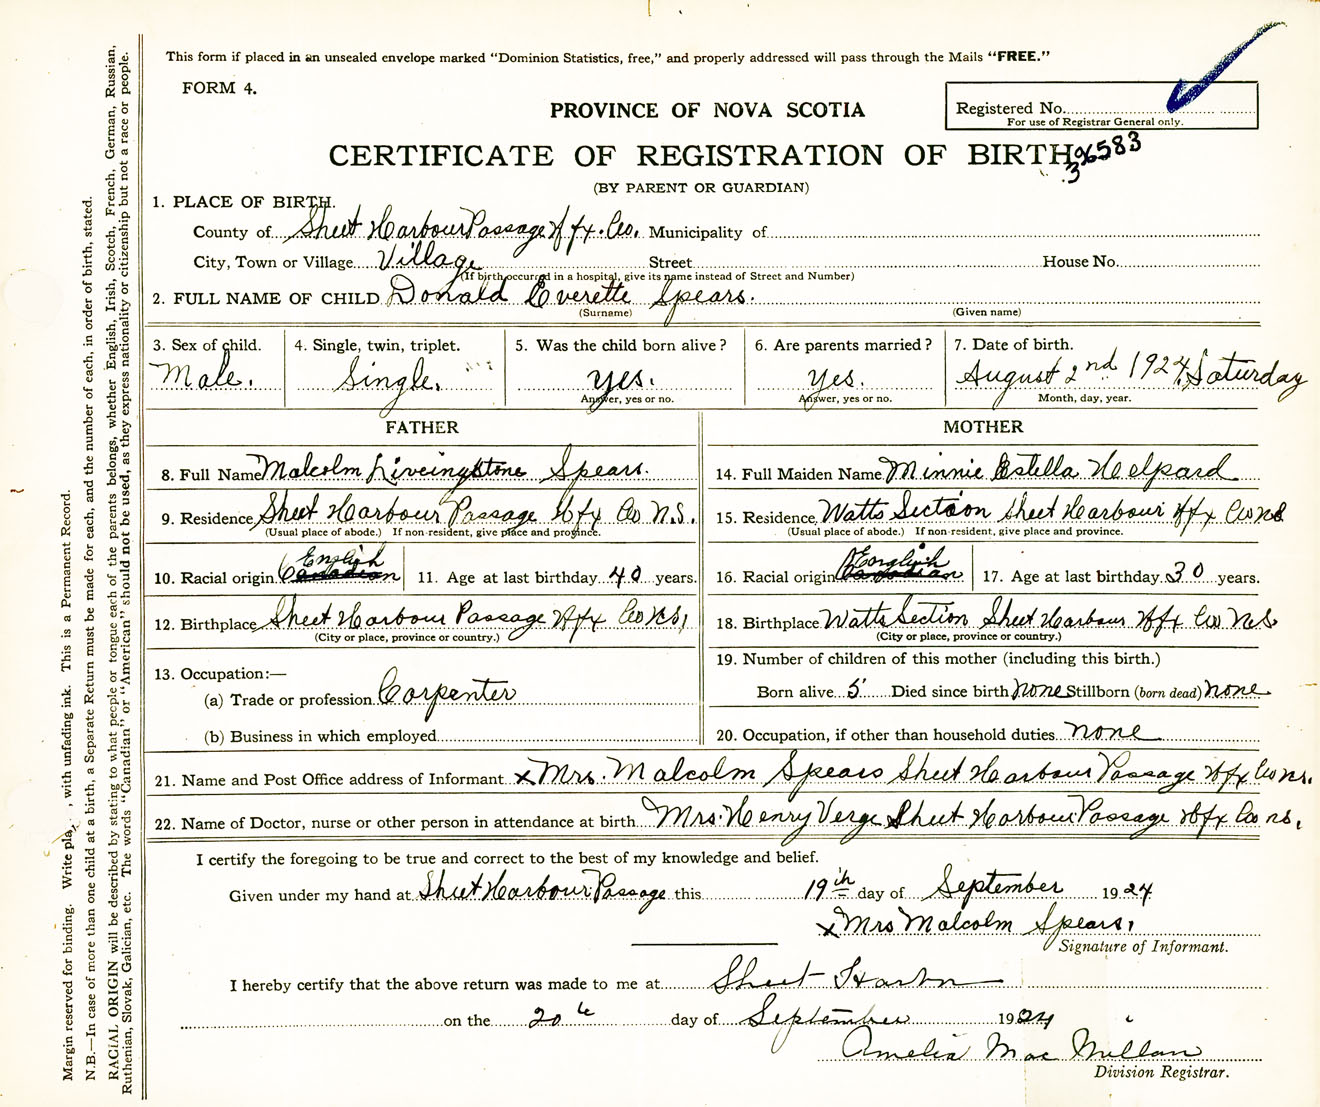 This form if placed in an unsealed envelope marked “Dominion Statistics, free,” and properly addressed will pass through the Mails “FREE.”
FORM 4.
Registered No.
For use of Registrar General only.
PROVINCE OF NOVA SCOTIA
CERTIFICATE OF REGISTRATION OF BIRTH
(BY PARENT OR GUARDIAN)
1. PLACE OF BIRTH.
County of Sheet Harbour Passage Hfx. Co. Municipality of
City, Town or Village Village Street House No.
(If birth occurred in a hospital, give its name instead of Street and Number)
2. FULL NAME OF CHILD Donald Everette Spears.
(Surname) (Given name)
3. Sex of child. 4. Single, twin, triplet. 5. Was the child born alive? 6. Are parents married? 7. Date of birth.
Male. Single. yes. yes. August 2nd 1924, Saturday
Answer, yes or no. Answer, yes or no. Month, day, year.
FATHER MOTHER
8. Full Name Malcolm Liveingstone Spears. 14. Full Maiden Name Minnie Estella Helpard
9. Residence Sheet Harbour Passage Hfx Co N.S. 15. Residence Watts Section Sheet Harbour Hfx Co NS
(Usual place of abode.) If non-resident, give place and province. (Usual place of abode.) If non-resident, give place and province.
English English
10. Racial origin Canadian 11. Age at last birthday 40 years. 16. Racial origin Canadian 17. Age at last birthday 30 years.
12. Birthplace Sheet Harbour Passage Hfx Co NS, 18. Birthplace Watts Section Sheet Harbour Hfx Co N.S.
(City or place, province or country.) (City or place, province or country.)
13. Occupation:— 19. Number of children of this mother (including this birth.)
(a) Trade or profession Carpenter Born alive 5 Died since birth none Stillborn (born dead) none
(b) Business in which employed 20. Occupation, if other than household duties none
21. Name and Post Office address of Informant x Mrs. Malcolm Spears Sheet Harbour Passage Hfx Co NS.
22. Name of Doctor, nurse or other person in attendance at birth Mrs. Henry Verge Sheet Harbour Passage Hfx Co ns,
I certify the foregoing to be true and correct to the best of my knowledge and belief.
Given under my hand at Sheet Harbour Passage this 19th day of September 1924
x Mrs Malcolm Spears,
Signature of Informant.
I hereby certify that the above return was made to me at Sheet Harbor
on the 20 day of September 1924
Amelia MacMillan
Division Registrar.
Margin reserved for binding. Write , with unfading ink. This is a Permanent Record.
N.B.—In case of more than one child at a birth, a Separate Return must be made for each, and the number of each, in order of birth, stated.
RACIAL ORIGIN will be described by stating to what people or tongue each of the parents belongs, whether English, Irish, Scotch, French, German, Russian,
Ruthenian, Slovak, Galician, etc. The words “Canadian” or “American” should not be used, as they express nationality or citizenship but not a race or people.